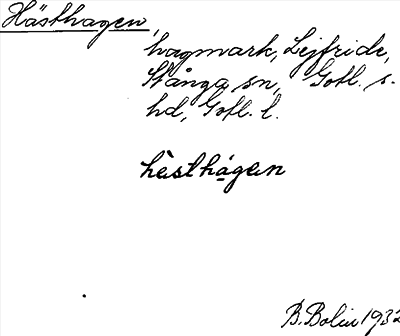 Hästhagen,
hagmark, Lejfride,
Stånga sn, Gotl. s.
hd, Gotl. l.
hèsthágen
B. Bolin 1932